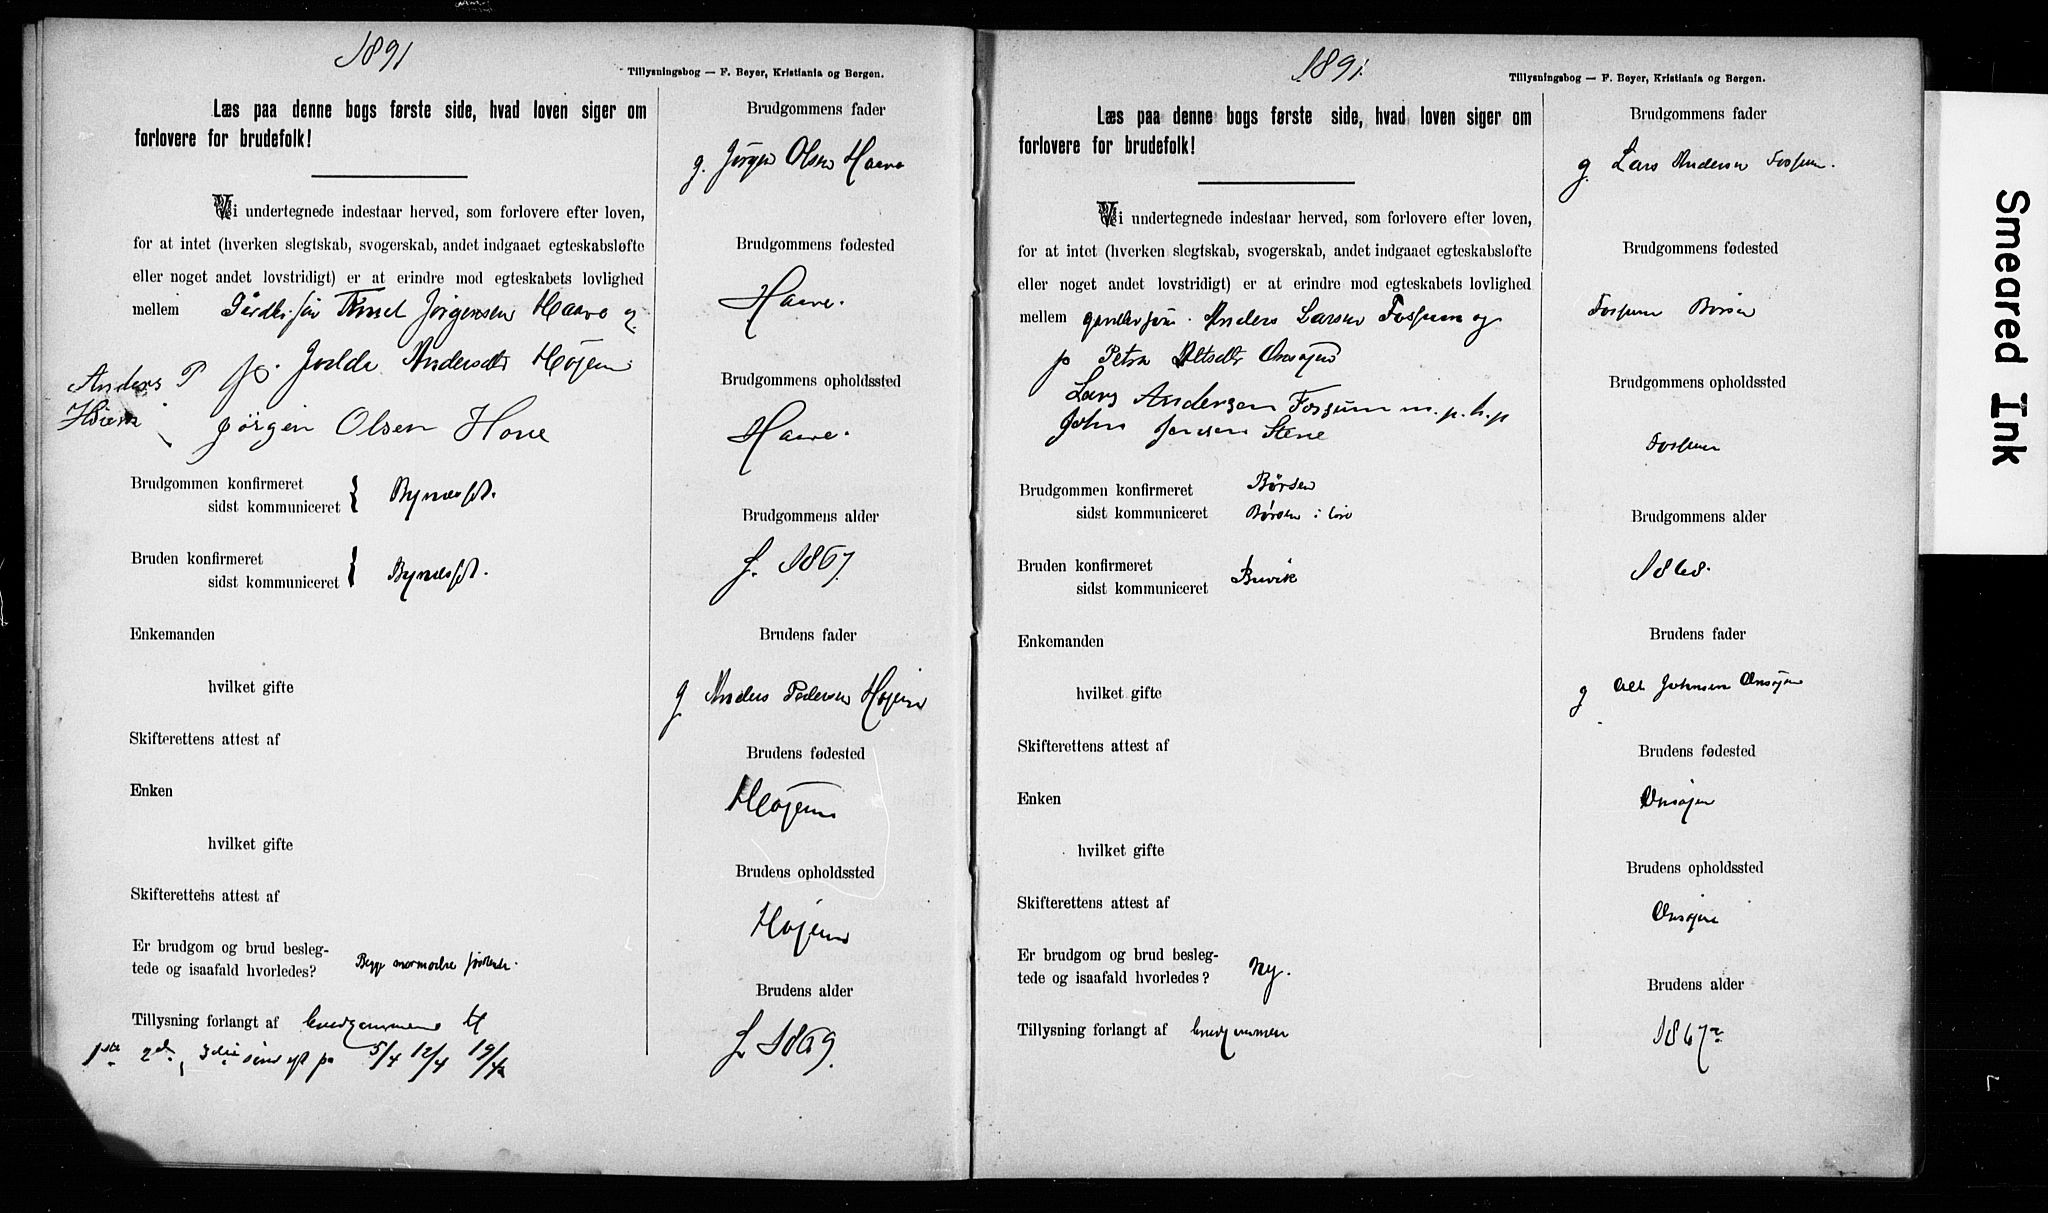 1891
Tillysningsbog — F. Beyer, Kristiania og Bergen.
Læs paa denne bogs første side, hvad loven siger om
forlovere for brudefolk!
Vi undertegnede indestaar herved, som forlovere efter loven,
for at intet (hverken slegtskab, svogerskab, andet indgaaet egteskabsløfte
eller noget andet lovstridigt) er at erindre mod egteskabets lovlighed
mellem Knud Jørgensen Haave og
p. Andersdtr Højem
Anders P
Høiem
Jørgen Olsen Hove
Brudgommen konfirmeret
sidst kommuniceret } Bynæsset.
Bruden konfirmeret
sidst kommuniceret } Bynæsset.
Enkemanden
hvilket gifte
Skifterettens attest af
Enken
hvilket gifte
Skifterettens attest af
Er brudgom og brud besleg-
tede og isaafald hvorledes?
Tillysning forlangt af brudgommen
1ste 2den 3die 5/4 12/4 19/4
Brudgommens fader
g. Jørgen Olsen Haave
Brudgommens fødested
Haave.
Brudgommens opholdssted
Haave.
Brudgommens alder
f. 1867.
Brudens fader
g Anders Pedersen Højem
Brudens fødested
Højem
Brudens opholdssted
Højem
Brudens alder
f. 1869.
1891.
Tillysningsbog — F. Beyer, Kristiania og Bergen.
Læs paa denne bogs første side, hvad loven siger om
forlovere for brudefolk!
Vi undertegnede indestaar herved, som forlovere efter loven,
for at intet (hverken slegtskab, svogerskab, andet indgaaet egteskabsløfte
eller noget andet lovstridigt) er at erindre mod egteskabets lovlighed
mellem Anders Larsen Fossum og
p Petra Onsøjen
Lars Andersen Fossum m. p. h. p
John Jensen Stene
Brudgommen konfirmeret Børsen
sidst kommuniceret Børsen i
Bruden konfirmeret Buvik
sidst kommuniceret
Enkemanden
hvilket gifte
Skifterettens attest af
Enken
hvilket gifte
Skifterettens attest af
Er brudgom og brud besleg-
tede og isaafald hvorledes? Nej.
Tillysning forlangt af brudgommen
Brudgommens fader
g. Lars Andersen Fossum.
Brudgommens fødested
Fossum Børsen
Brudgommens opholdssted
Fossum
Brudgommens alder
1868.
Brudens fader
g Johnsen Onsøjen
Brudens fødested
Onsøjen
Brudens opholdssted
Onsøjen
Brudens alder
1867
Smeared Ink